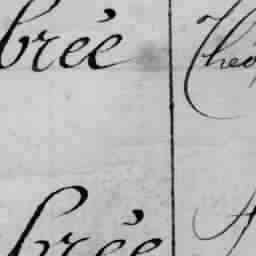 brée Théo
brée